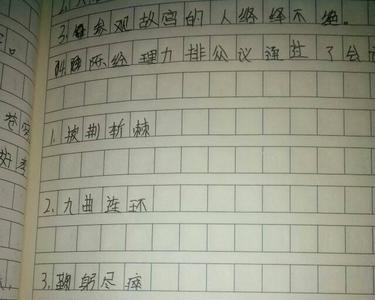 3. 参观故宫的人络绎不绝。
理力排众议通过了会
1. 披荆斩棘
2. 九曲连环
3. 鞠躬尽瘁